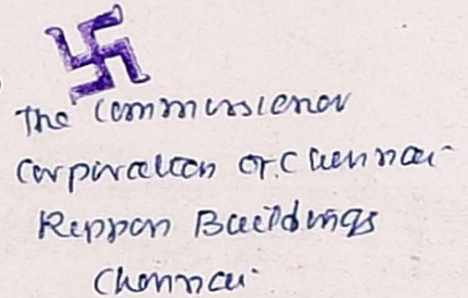 The Commissioner
Corporation of Chennai
Rippon Buildings
Chennai